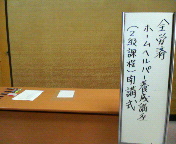 全労済
ホームヘルパー養成講座
(2級課程)開講式